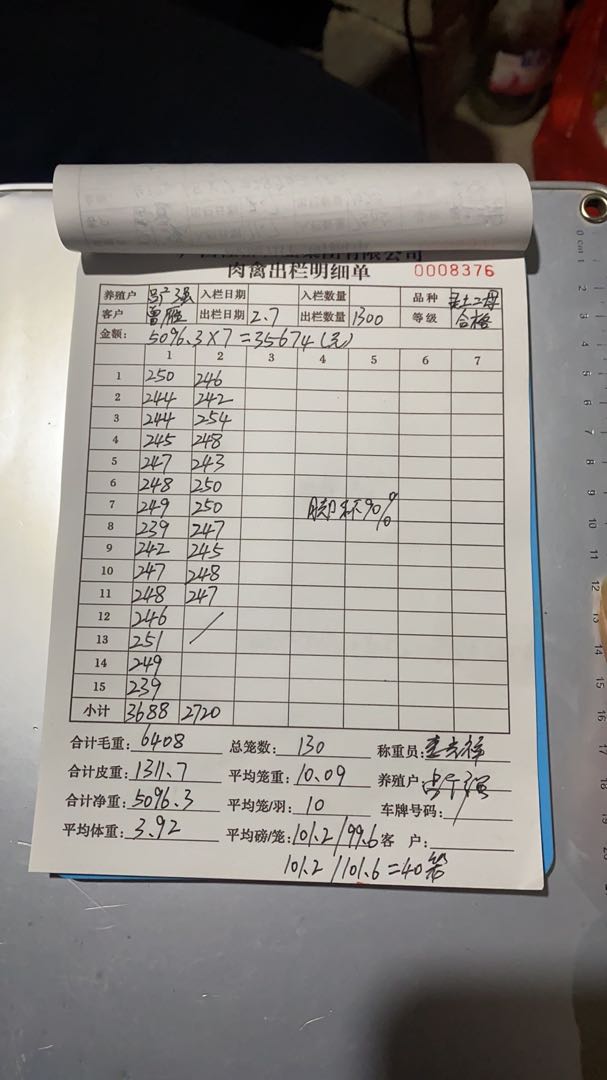 肉禽出栏明细单 0008376
养殖户 入栏日期 入栏数量 品种
客户 曾胜 出栏日期 2.7 出栏数量 1300 等级 合格
金额: 5096.3×7=35674(元)
1 2 3 4 5 6 7
1 250 246
2 244 242
3 244 254
4 245 248
5 247 243
6 248 250
7 249 250 脚环90%
8 239 247
9 242 245
10 247 248
11 248 247
12 246
13 251
14 249
15 239
小计 3688 2720
合计毛重: 6408 总笼数: 130 称重员:
合计皮重: 1311.7 平均笼重: 10.09 养殖户:
合计净重: 5096.3 平均笼/羽: 10 车牌号码: /
平均体重: 3.92 平均磅/笼: 101.2/99.6 客 户:
101.2/101.6=40笼